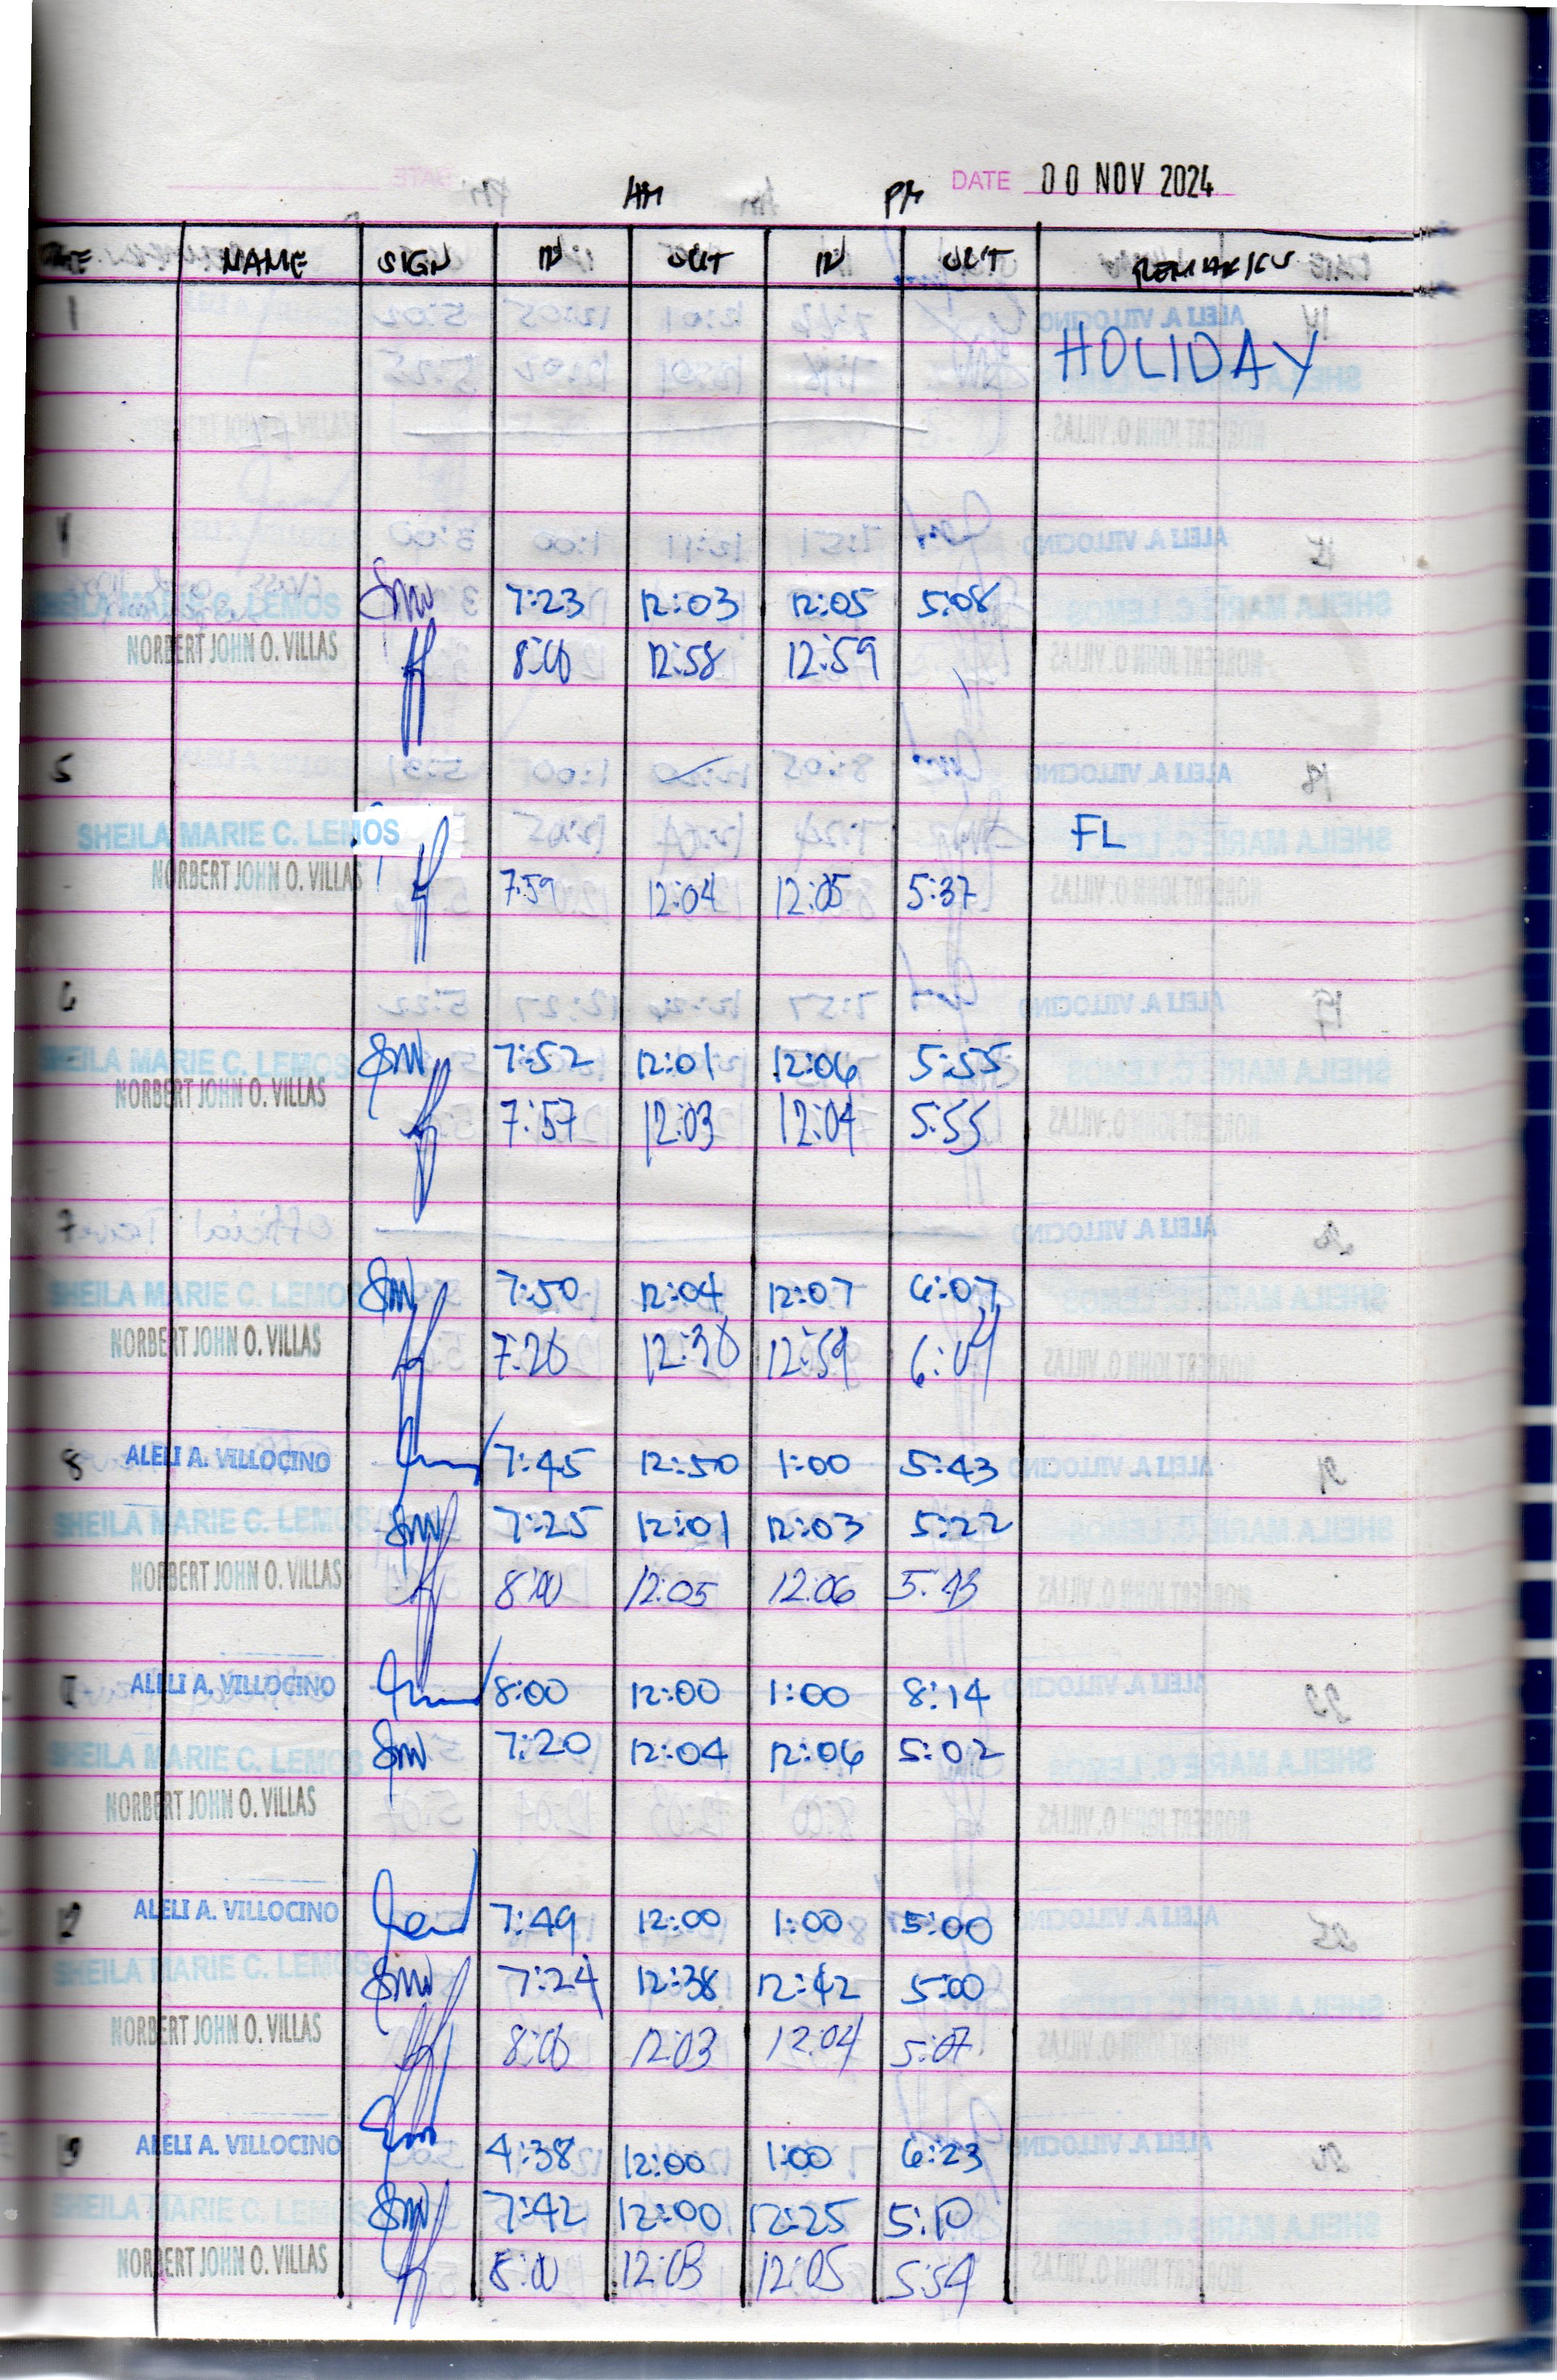 DATE 00 NOV 2024
AM PM
DATE NAME SIGN IN OUT IN OUT REMARKS
1
HOLIDAY
4
SHEILA MARIE C. LEMOS 7:23 12:03 12:05 5:08
NORBERT JOHN O. VILLAS 8:00 12:58 12:59
5
SHEILA MARIE C. LEMOS FL
NORBERT JOHN O. VILLAS 7:59 12:04 12:05 5:37
6
SHEILA MARIE C. LEMOS 7:52 12:01 12:06 5:55
NORBERT JOHN O. VILLAS 7:57 12:03 12:04 5:55
7
SHEILA MARIE C. LEMOS 7:50 12:04 12:07 6:07
NORBERT JOHN O. VILLAS 7:20 12:30 12:59 6:09
8 ALELI A. VILLOCINO 7:45 12:50 1:00 5:43
SHEILA MARIE C. LEMOS 7:25 12:01 12:03 5:22
NORBERT JOHN O. VILLAS 8:00 12:05 12:06 5:43
ALELI A. VILLOCINO 8:00 12:00 1:00 8:14
SHEILA MARIE C. LEMOS 7:20 12:04 12:06 5:02
NORBERT JOHN O. VILLAS
12 ALELI A. VILLOCINO 7:49 12:00 1:00 5:00
SHEILA MARIE C. LEMOS 7:24 12:38 12:42 5:00
NORBERT JOHN O. VILLAS 8:00 12:03 12:04 5:07
13 ALELI A. VILLOCINO 4:38 12:00 1:00 6:23
SHEILA MARIE C. LEMOS 7:42 12:00 12:25 5:10
NORBERT JOHN O. VILLAS 8:00 12:03 12:05 5:54